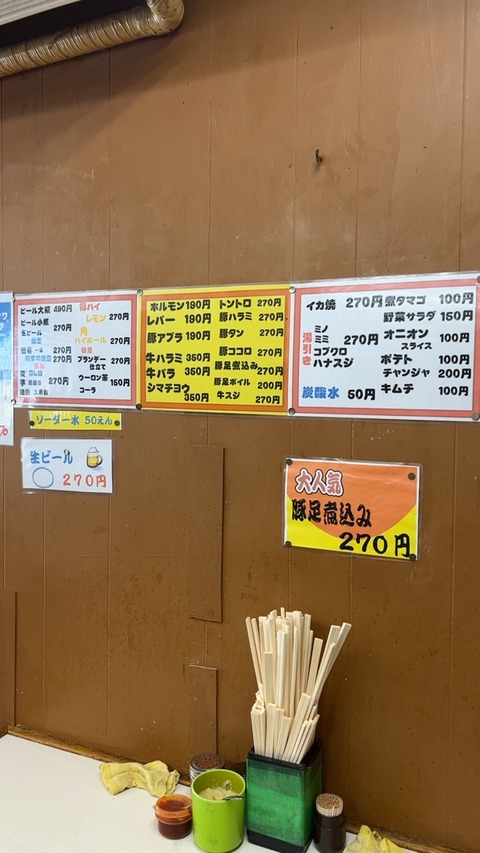 ビール大瓶 490円
ビール小瓶
生ビール 270円
270円
270円
270円
樽ハイ
レモン 270円
角
ハイボール 270円
ブランデー
仕立て 270円
ウーロン茶
コーラ 150円
ホルモン 190円
レバー 190円
豚アブラ 190円
牛ハラミ 350円
牛バラ 350円
シマチョウ
350円
トントロ 270円
豚ハラミ 270円
豚タン 270円
豚ココロ 270円
豚足煮込み 270円
豚足ボイル 200円
牛スジ 270円
イカ焼 270円
湯引き
ミノ
ミミ
コブクロ
ハナスジ
270円
炭酸水 50円
煮タマゴ 100円
野菜サラダ 150円
オニオン
スライス 100円
ポテト 100円
チャンジャ 200円
キムチ 100円
ソーダー水 50えん
生ビール
270円
大人気
豚足煮込み
270円